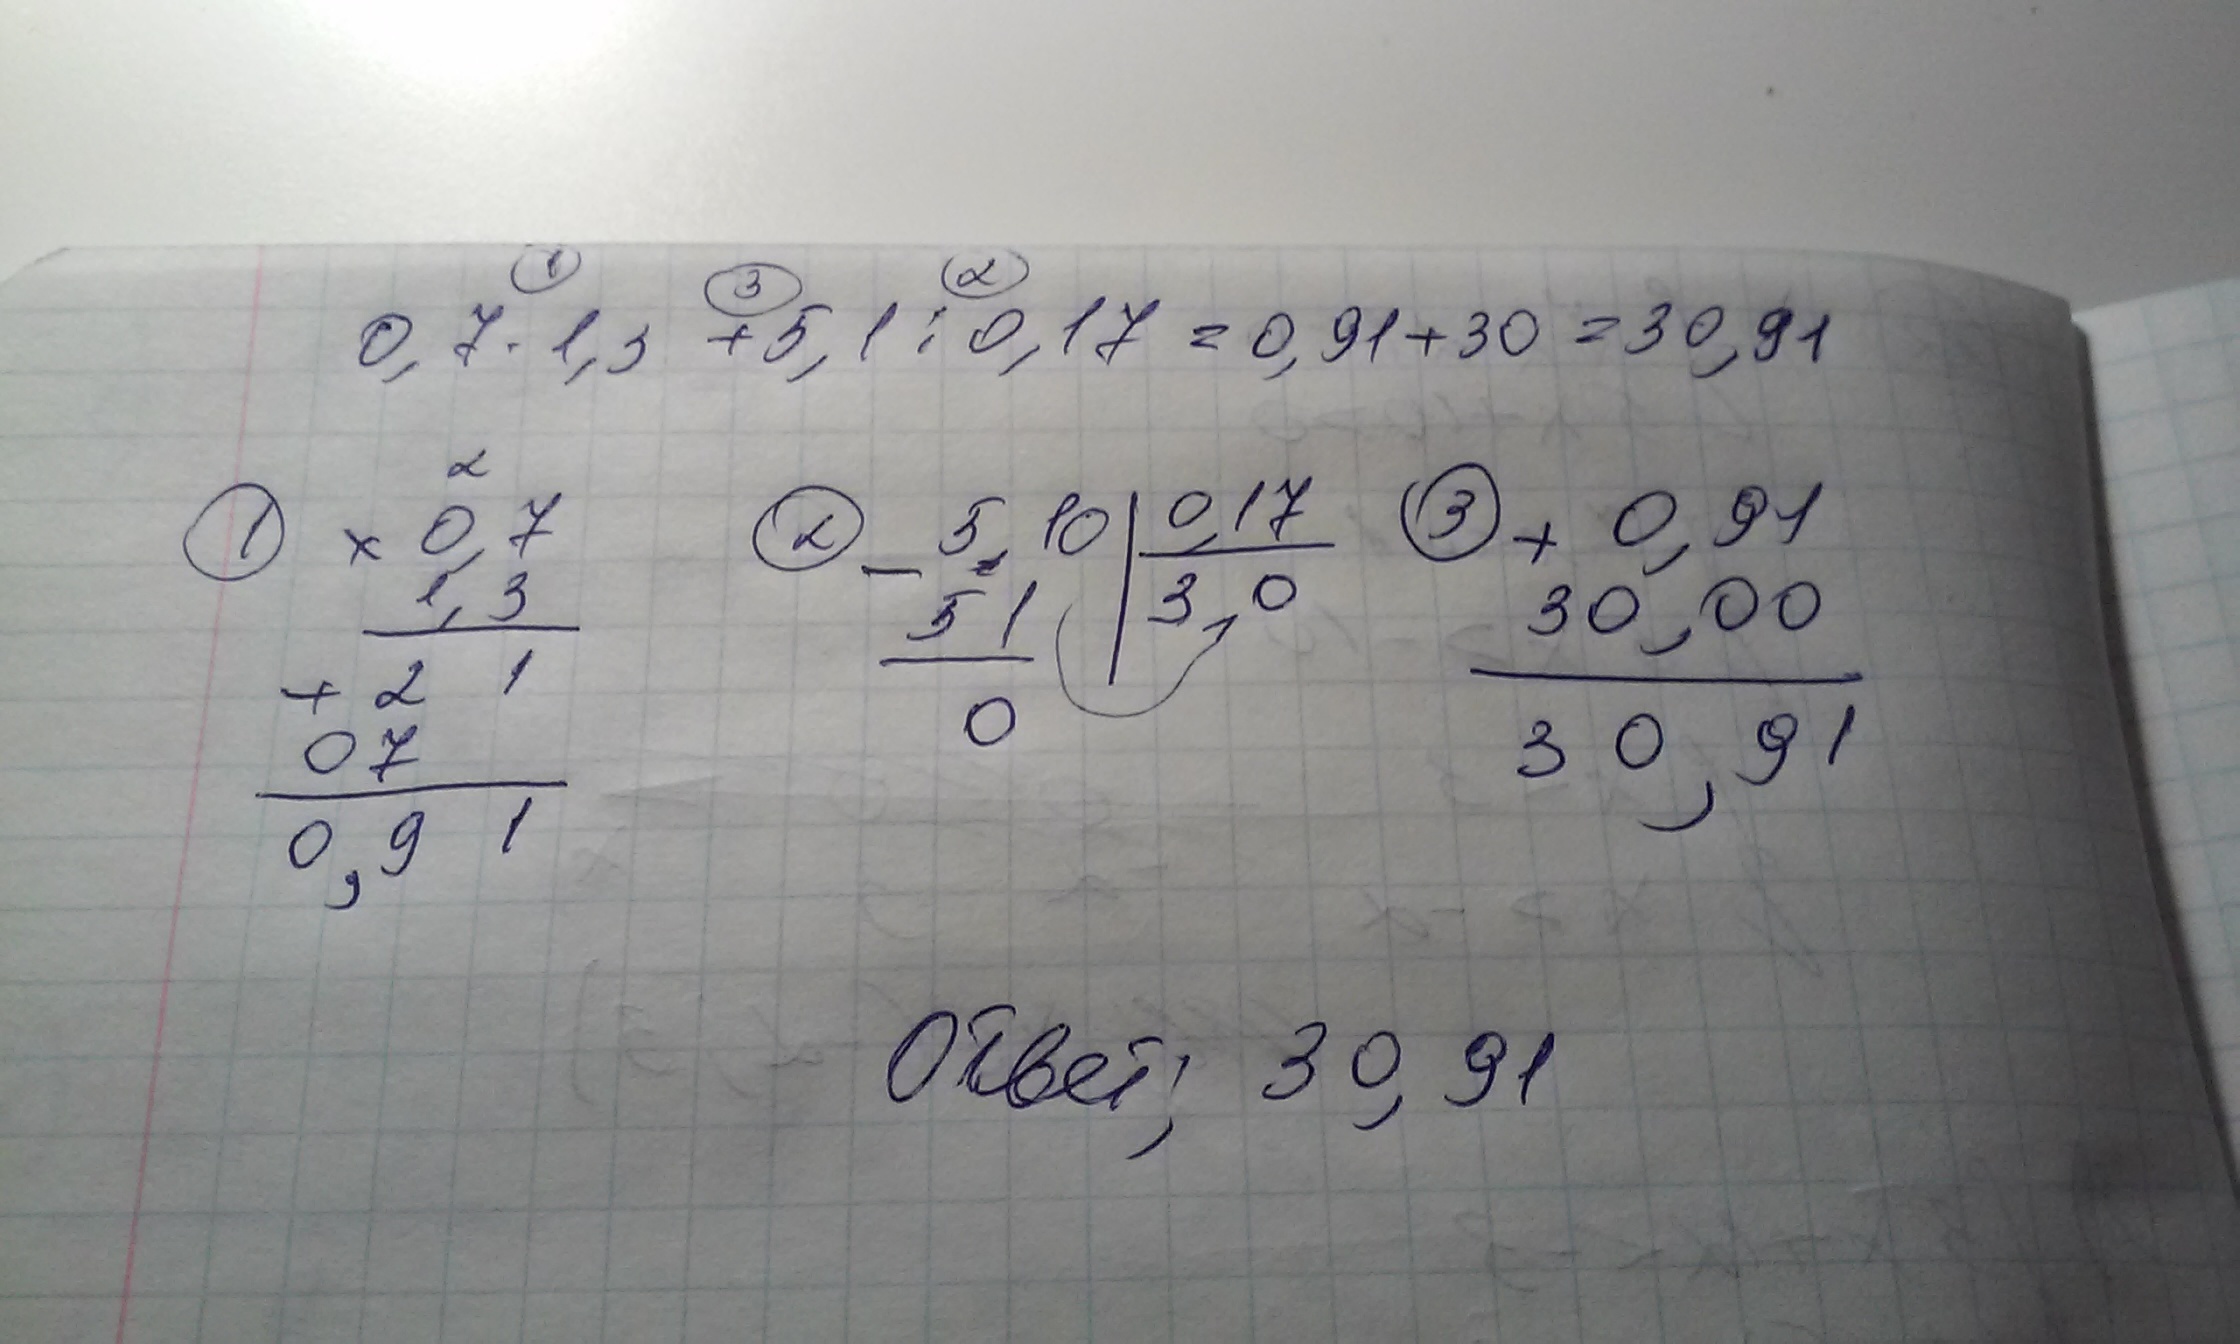 ① ③ ②
0,7 · 1,3 + 5,1 : 0,17 = 0,91 + 30 = 30,91
① 2
× 0,7
1,3
+ 2 1
0 7
0,9 1
② - 5,10 | 0,17
51 | 3,0
0
③ + 0,91
30,00
30,91
Ответ; 30,91